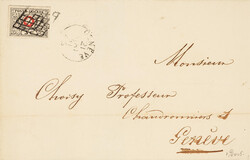 GENÈVE
Monsieur
Choisy Professeur
Chaudronniers
Genève